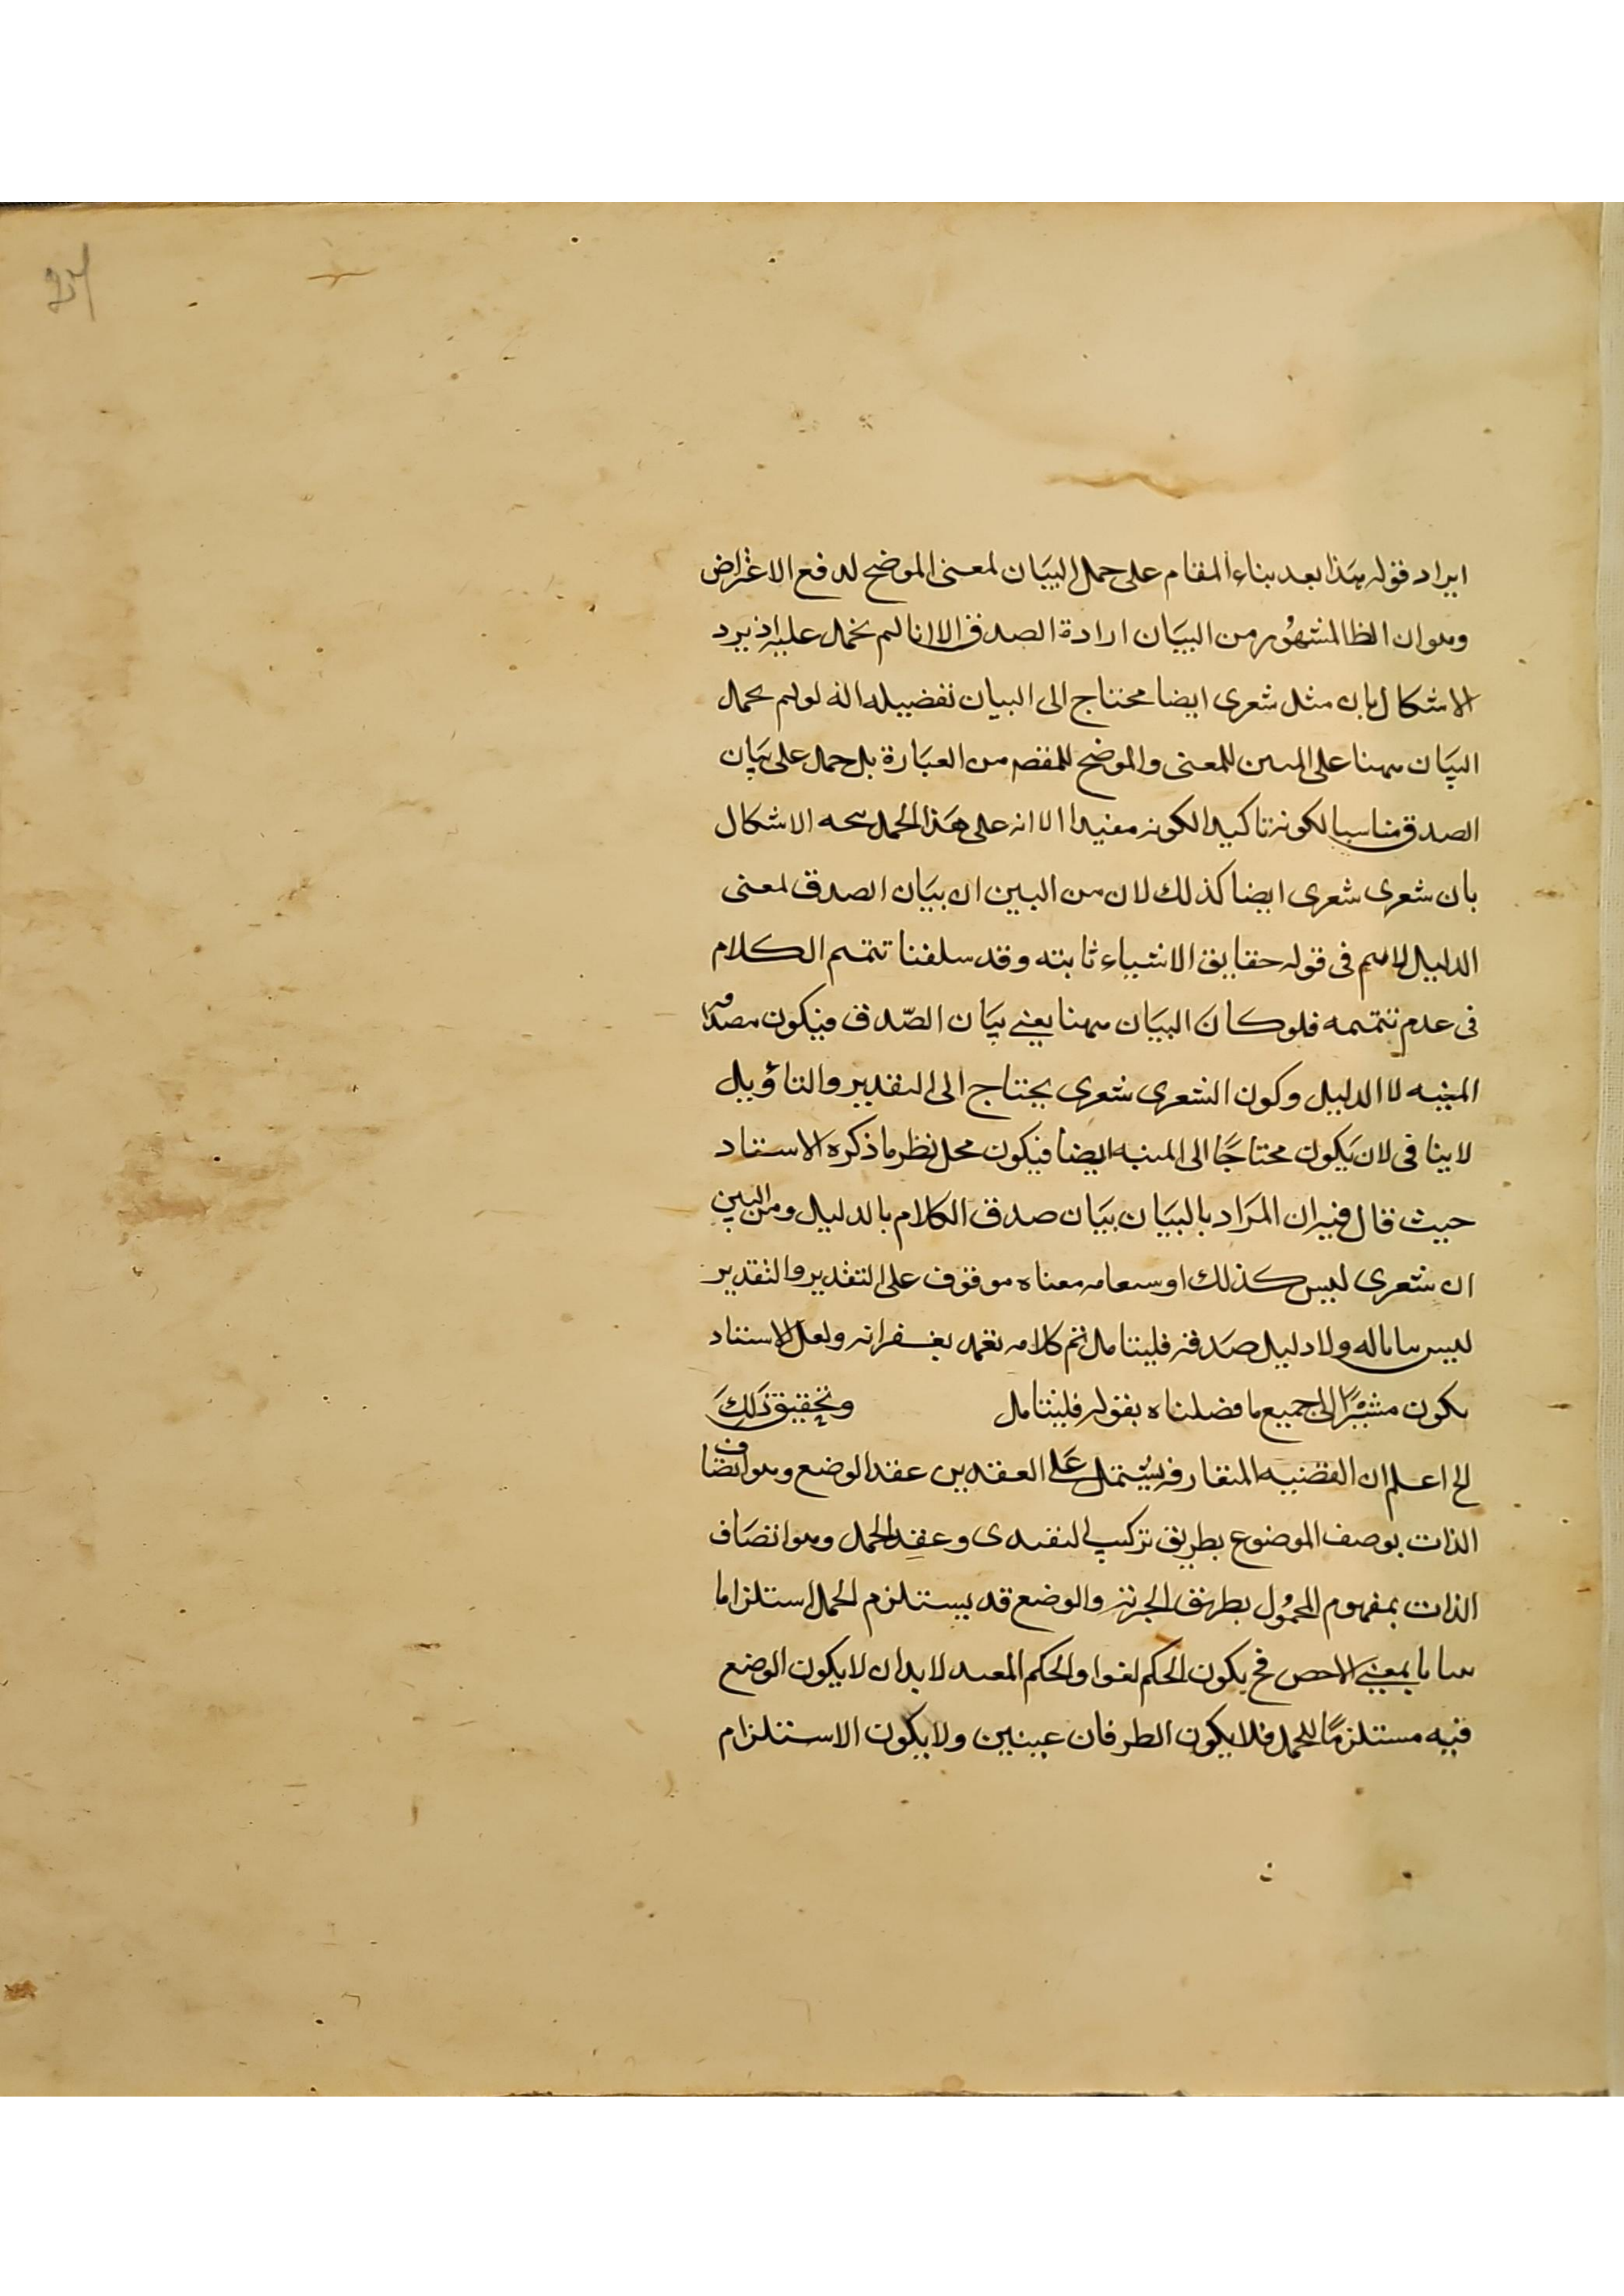 ايراد قوله هذا بعد بناء المقام على حمل البيان لمعنى الموضح لدفع الاعتراض
وهو ان الظا المشهور من البيان ارادة الصدق الا انا لم نحمل عليه اذ يرد
الاشكال بان مثل شعرى ايضا محتاج الى البيان تفصيله انه لو لم يحمل
البيان ههنا على المبين للمعنى والموضح للمقصم من العبارة بل حمل على بيان
الصدق مناسبا لكونه تاكيدا لكونه مفيدا الا انه على هذا الحمل الاشكال
بان شعرى شعرى ايضا كذلك لان من البين ان بيان الصدق لمعنى
الدليل فى قوله حقايق الاشياء ثابته وقد سلفنا تتمم الكلام
فى عدم تتممه فلو كان البيان ههنا يعنى بيان الصّدق فيكون
المنبه لا الدليل وكون الشعرى شعرى يحتاج الى التقدير والتاؤيل
لاينافى لان يكون محتاجًا الى المنبه ايضا فيكون محل نظر ما ذكره الاستاد
حيث قال فيه ان المراد بالبيان بيان صدق الكلام بالدليل ومن البين
ان شعرى ليس كذلك معناه موقوف على التقدير والتقدير
ليس بيانا له ولا دليل صدقه فليتامل تم كلامه تغمد بغفرانه ولعل الاستاد
يكون مشيرًا الى جميع ما فصلناه بقوله فليتامل وتحقيق ذلك
الخ اعلم ان القضيه المتعارفه يشتمل على العقدين عقد الوضع وهو اتصاف
الذات بوصف الموضوع بطريق تركيب التقيدى وعقد الحمل وهو اتصاف
الذات بمفهوم المحمول بطريق الخبرية والوضع قد يستلزم الحمل استلزاما
بينا بمعنى الاخص فح يكون الحكم لغوا والحكم المفيد لا بد ان لا يكون الوضع
فيه مستلزمًا للحمل فلا يكون الطرفان عينين ولا يكون الاستلزام